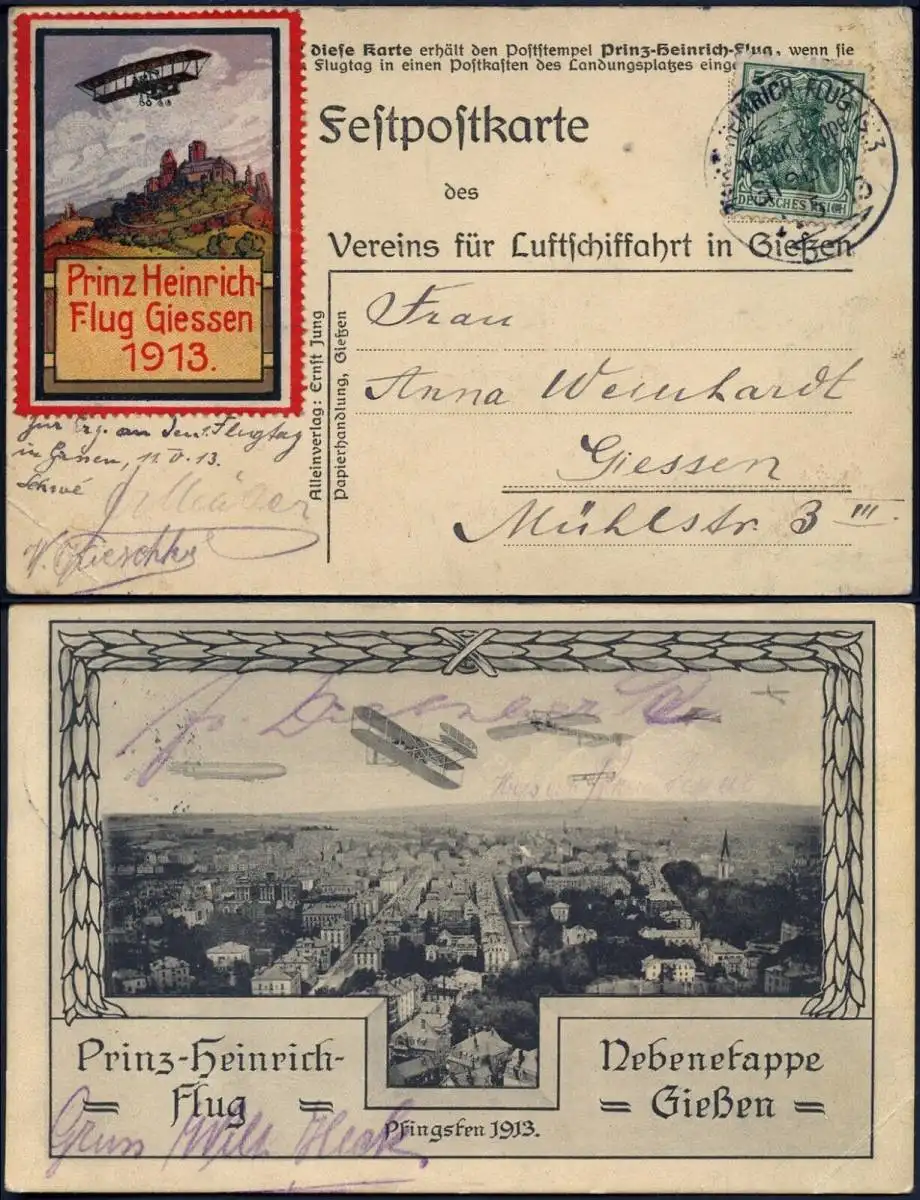 diese Karte erhält den Poststempel Prinz-Heinrich-Flug, wenn sie
Flugtag in einen Postkasten des Landungsplatzes
Festpostkarte
des
Vereins für Luftschiffahrt in Gießen
DEUTSCHES REICH
HEINRICH FLUG 1913
Prinz Heinrich-
Flug Giessen
1913.
Alleinverlag: Ernst Jung
Papierhandlung, Gießen
Frau
Anna Weinhardt
Giessen
Mühlstr. 3 III.
Zur Erg. an den 1. Flugtag
in 11. V. 13.
Prinz-Heinrich-
Flug
Nebenetappe
Gießen
Pfingsten 1913.
Gruss Wilh. Heck